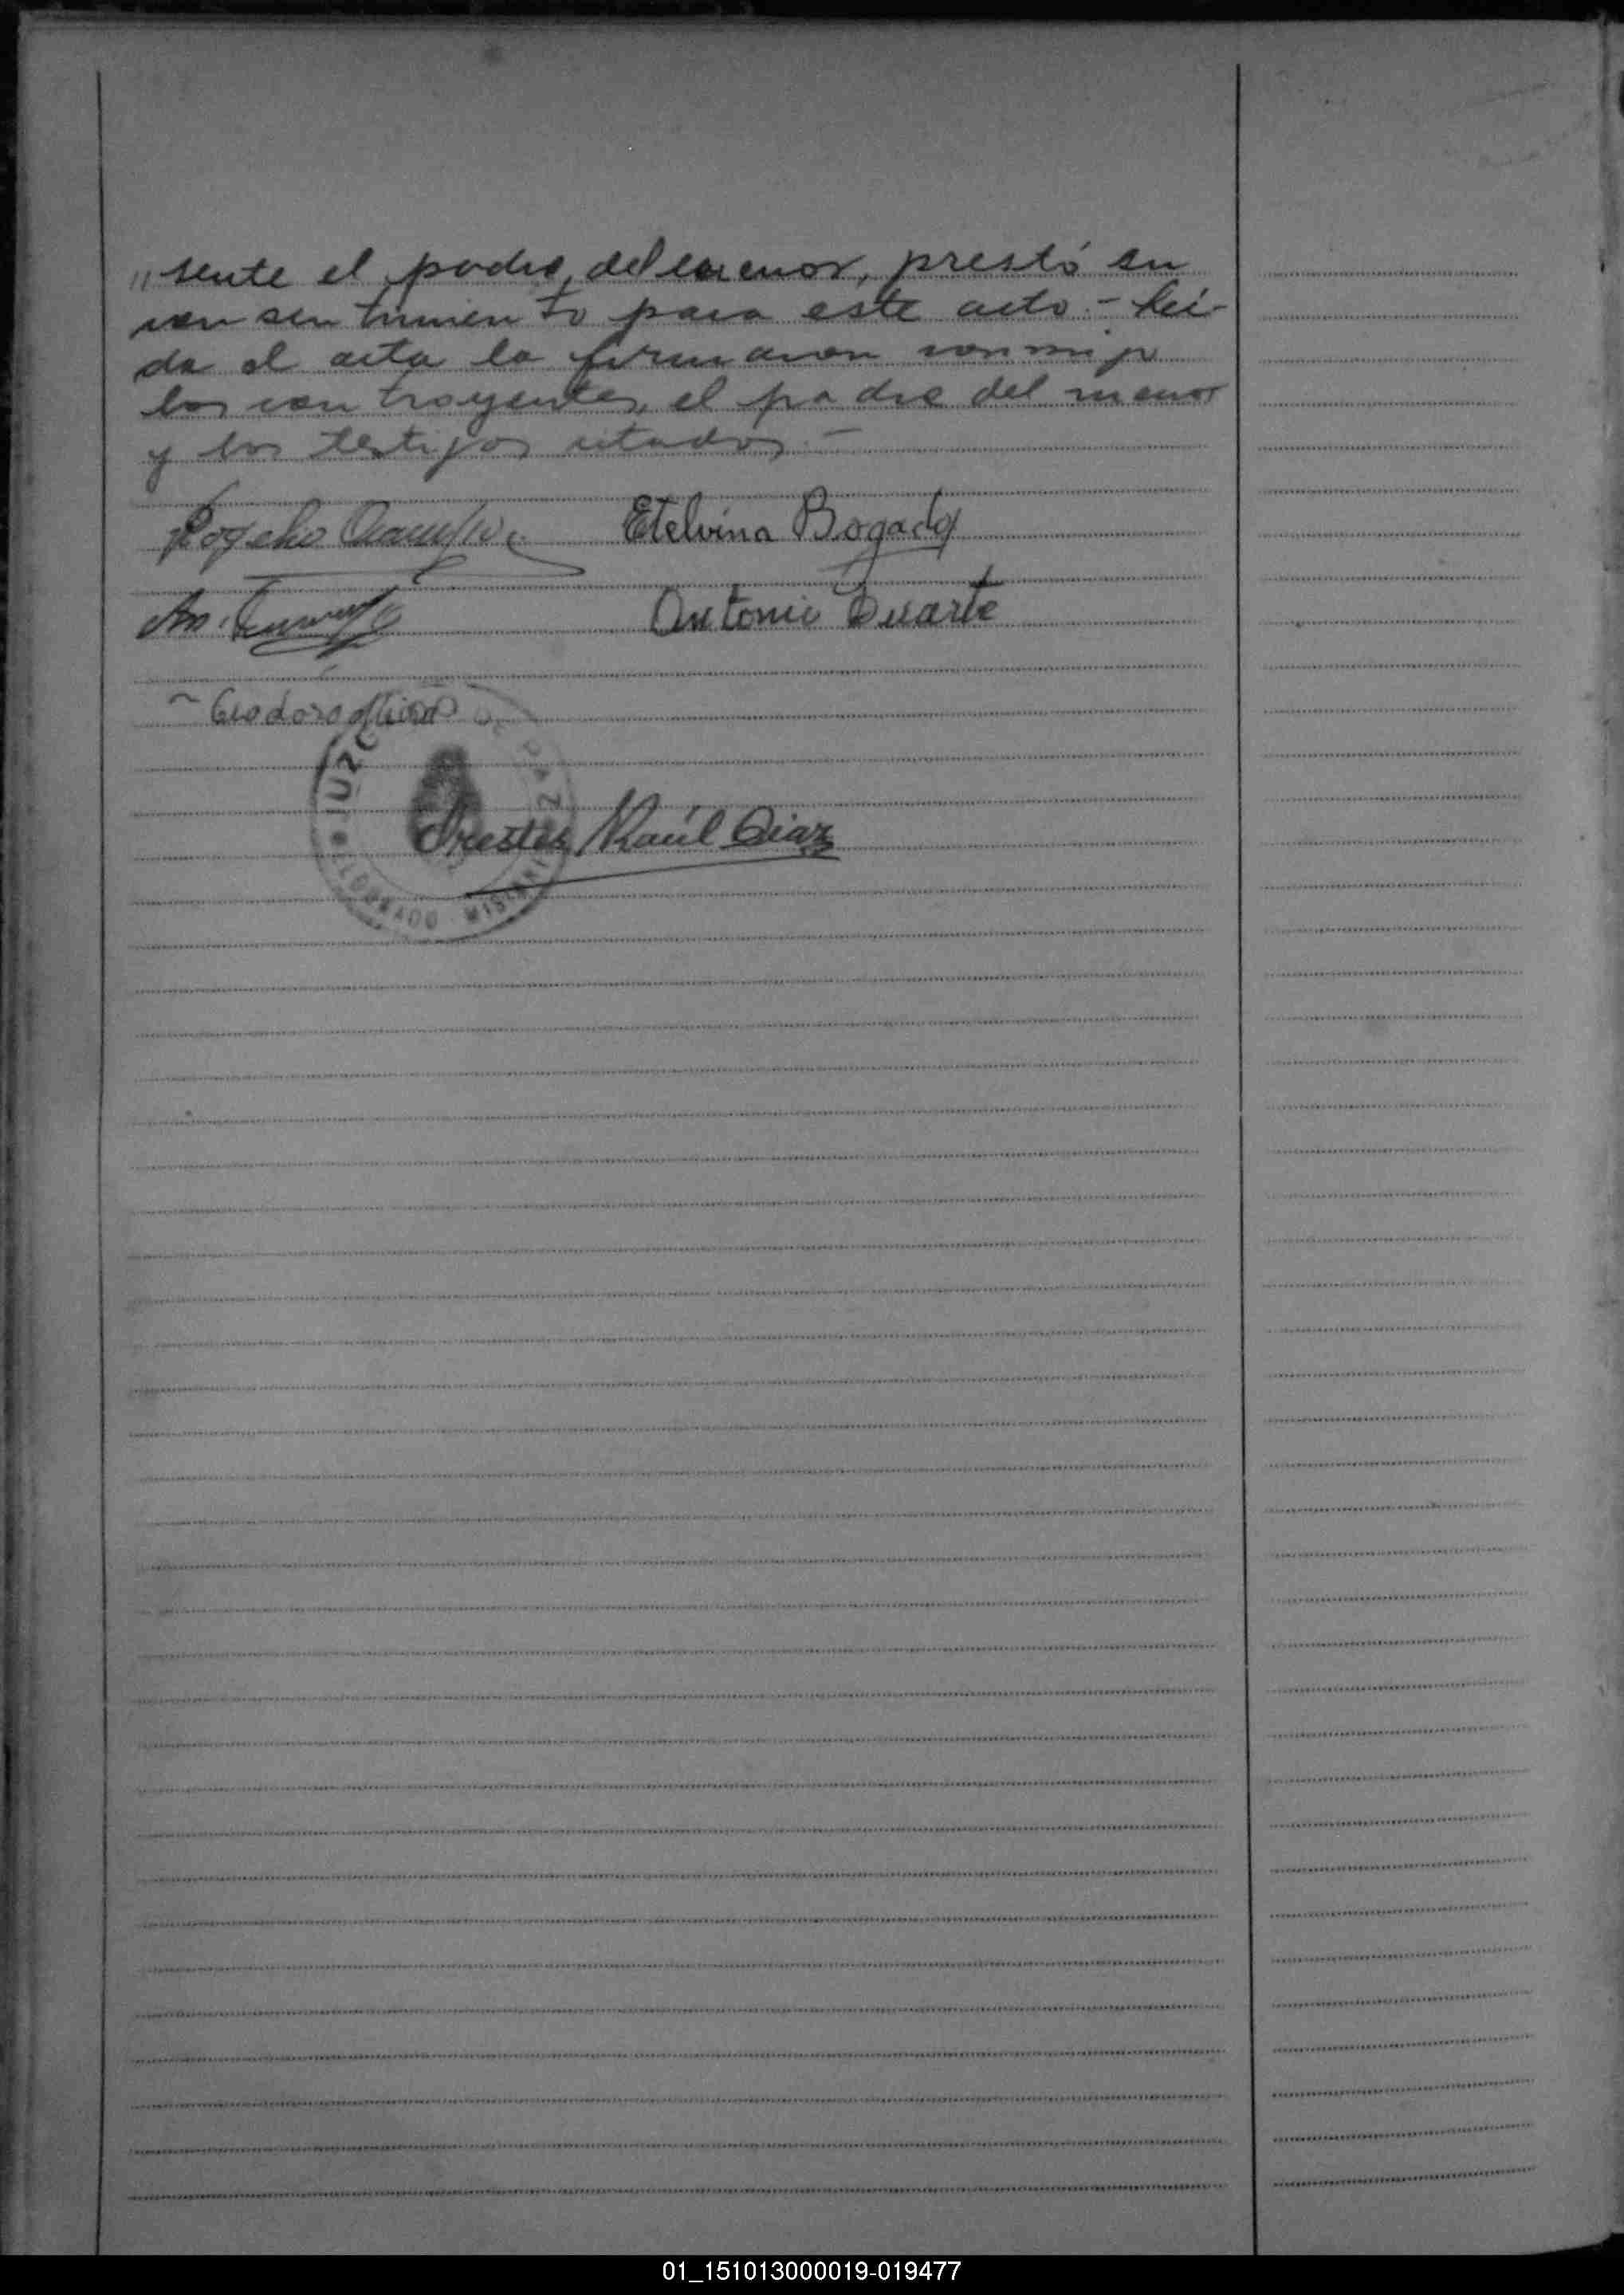 "sente el padre, del menor, prestó su
consentimiento para este acto.- Leí-
da el acta la firmaron conmigo
los contrayentes, el padre del menor
y los testigos citados.-
Rogelio Etelvina Bogado
Antonio Duarte
Teodoro
JUZ DE PAZ
Orestes Raúl Diaz
ELDORADO MISIONES
01_151013000019-019477